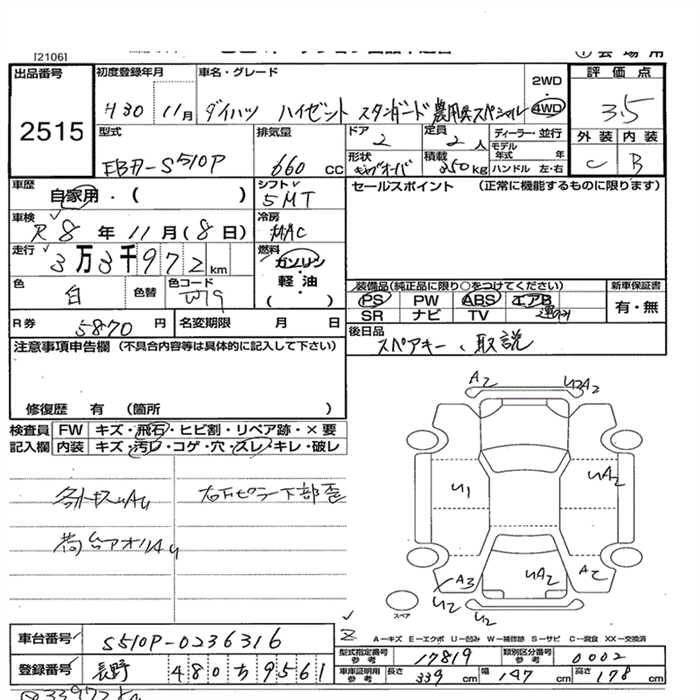 [2106]
出品番号
2515
初度登録年月
H30 11月
車名・グレード
ダイハツ ハイゼット スタンダード 農用スペシャル
2WD
4WD
評価点
3.5
外装 内装
C B
型式
EBD-S510P
排気量
660 cc
ドア
2
定員
2人
形状
積載
350kg
ディーラー・並行
モデル年式 年
ハンドル 左・右
車歴
自家用・( )
シフト
5MT
セールスポイント (正常に機能するものに限ります)
車検
R8年11月(8日)
冷房
MAC
走行
3万3千972km
燃料
ガソリン
軽油
( )
色
白
色替
色コード
W19
装備品(純正品に限り○をつけてください)
PS PW ABS エアB
SR ナビ TV
新車保証書
有・無
R券 5870円
名変期限 月 日
後日品
スペアキー、取説
注意事項申告欄(不具合内容等は具体的に記入して下さい)
修復歴 有(箇所 )
検査員 FW キズ・飛石・ヒビ割・リペア跡・×要
記入欄 内装 キズ・汚レ・コゲ・穴・スレ・キレ・破レ
各所キズUAU
右Fピラー下部歪
荷台アオリAU
A2
UA2
U1
UA2
A3
UA2
A2
U2
U2
スペア
A―キズ E―エクボ U―凹み W―補修跡 S―サビ C―腐食 XX―交換済
車台番号
S510P-0236316
登録番号
長野 480 ち 9561
型式指定番号 参考
17819
類別区分番号 参考
0002
車庫証明用 参考
長さ 339cm
幅 147cm
高さ 178cm